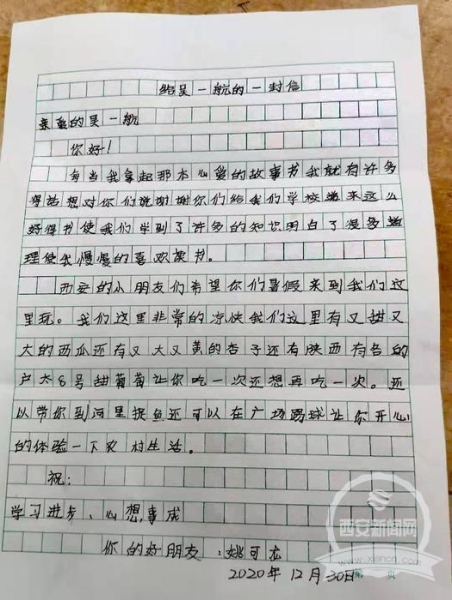 给吴一航的一封信
亲爱的吴一航
你好!
每当我拿起那本心爱的故事书我就有许多
得话想对你们说谢谢你们给我们学校送来这么
好得书使我们学到了许多的知识明白了很多道
理使我慢慢的喜欢读书。
西安的小朋友们希望你们暑假来到我们这
里玩。我们这里非常的凉快我们这里有又甜又
大的西瓜还有又大又黄的杏子还有陕西有名的
户太8号甜葡萄让你吃一次还想再吃一次。还
以带你到河里捉鱼还可以在广场踢球让你开心
的体验一下农村生活。
祝:
学习进步、心想事成
你的好朋友:姚可
2020年12月30日
第 页
西安新闻网
www.xiancn.com